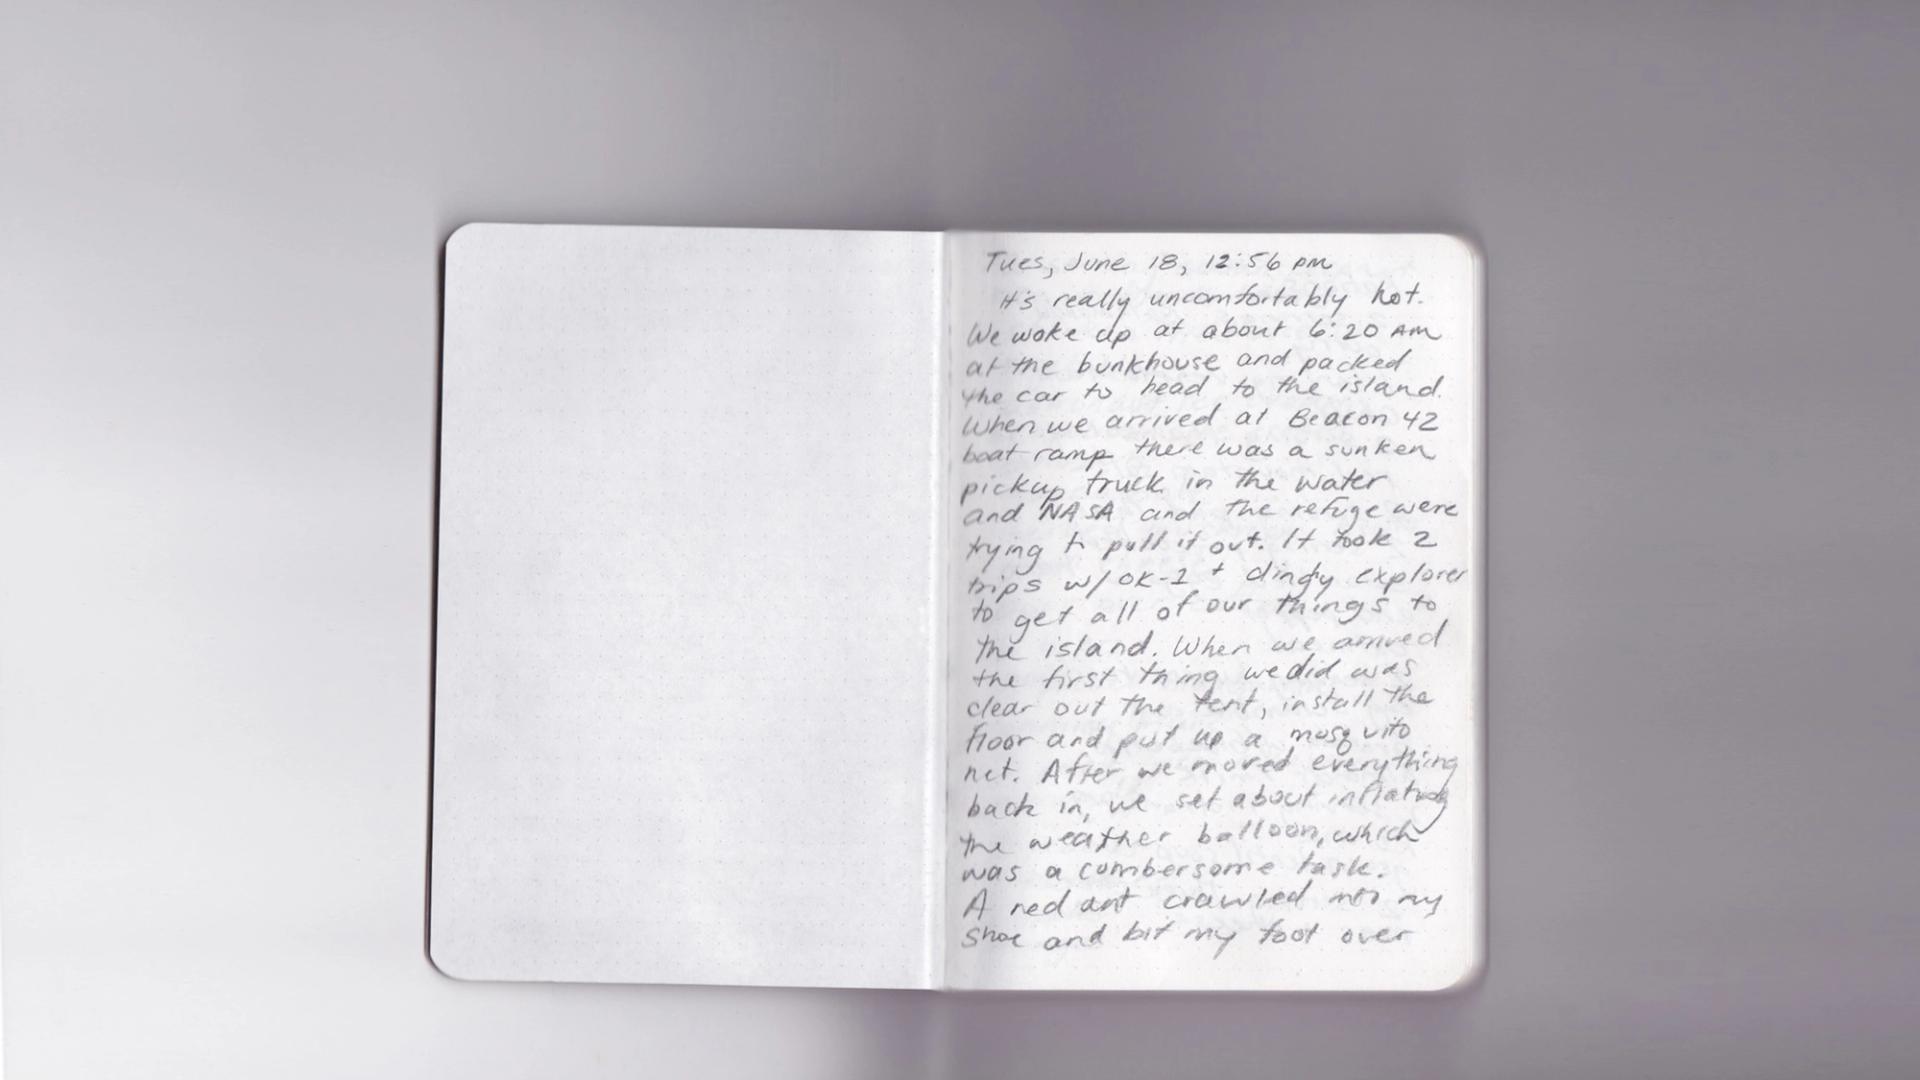 Tues, June 18, 12:56 PM
It's really uncomfortably hot.
We woke up at about 6:20 AM
at the bunkhouse and packed
the car to head to the island.
When we arrived at Beacon 42
boat ramp there was a sunken
pickup truck in the water
and NASA and the refuge were
trying to pull it out. It took 2
trips w/ OK-1 + dingy explorer
to get all of our things to
the island. When we arrived
the first thing we did was
clear out the tent, install the
floor and put up a mosquito
net. After we moved everything
back in, we set about inflating
the weather balloon, which
was a combersome task.
A red ant crawled into my
shoe and bit my foot over